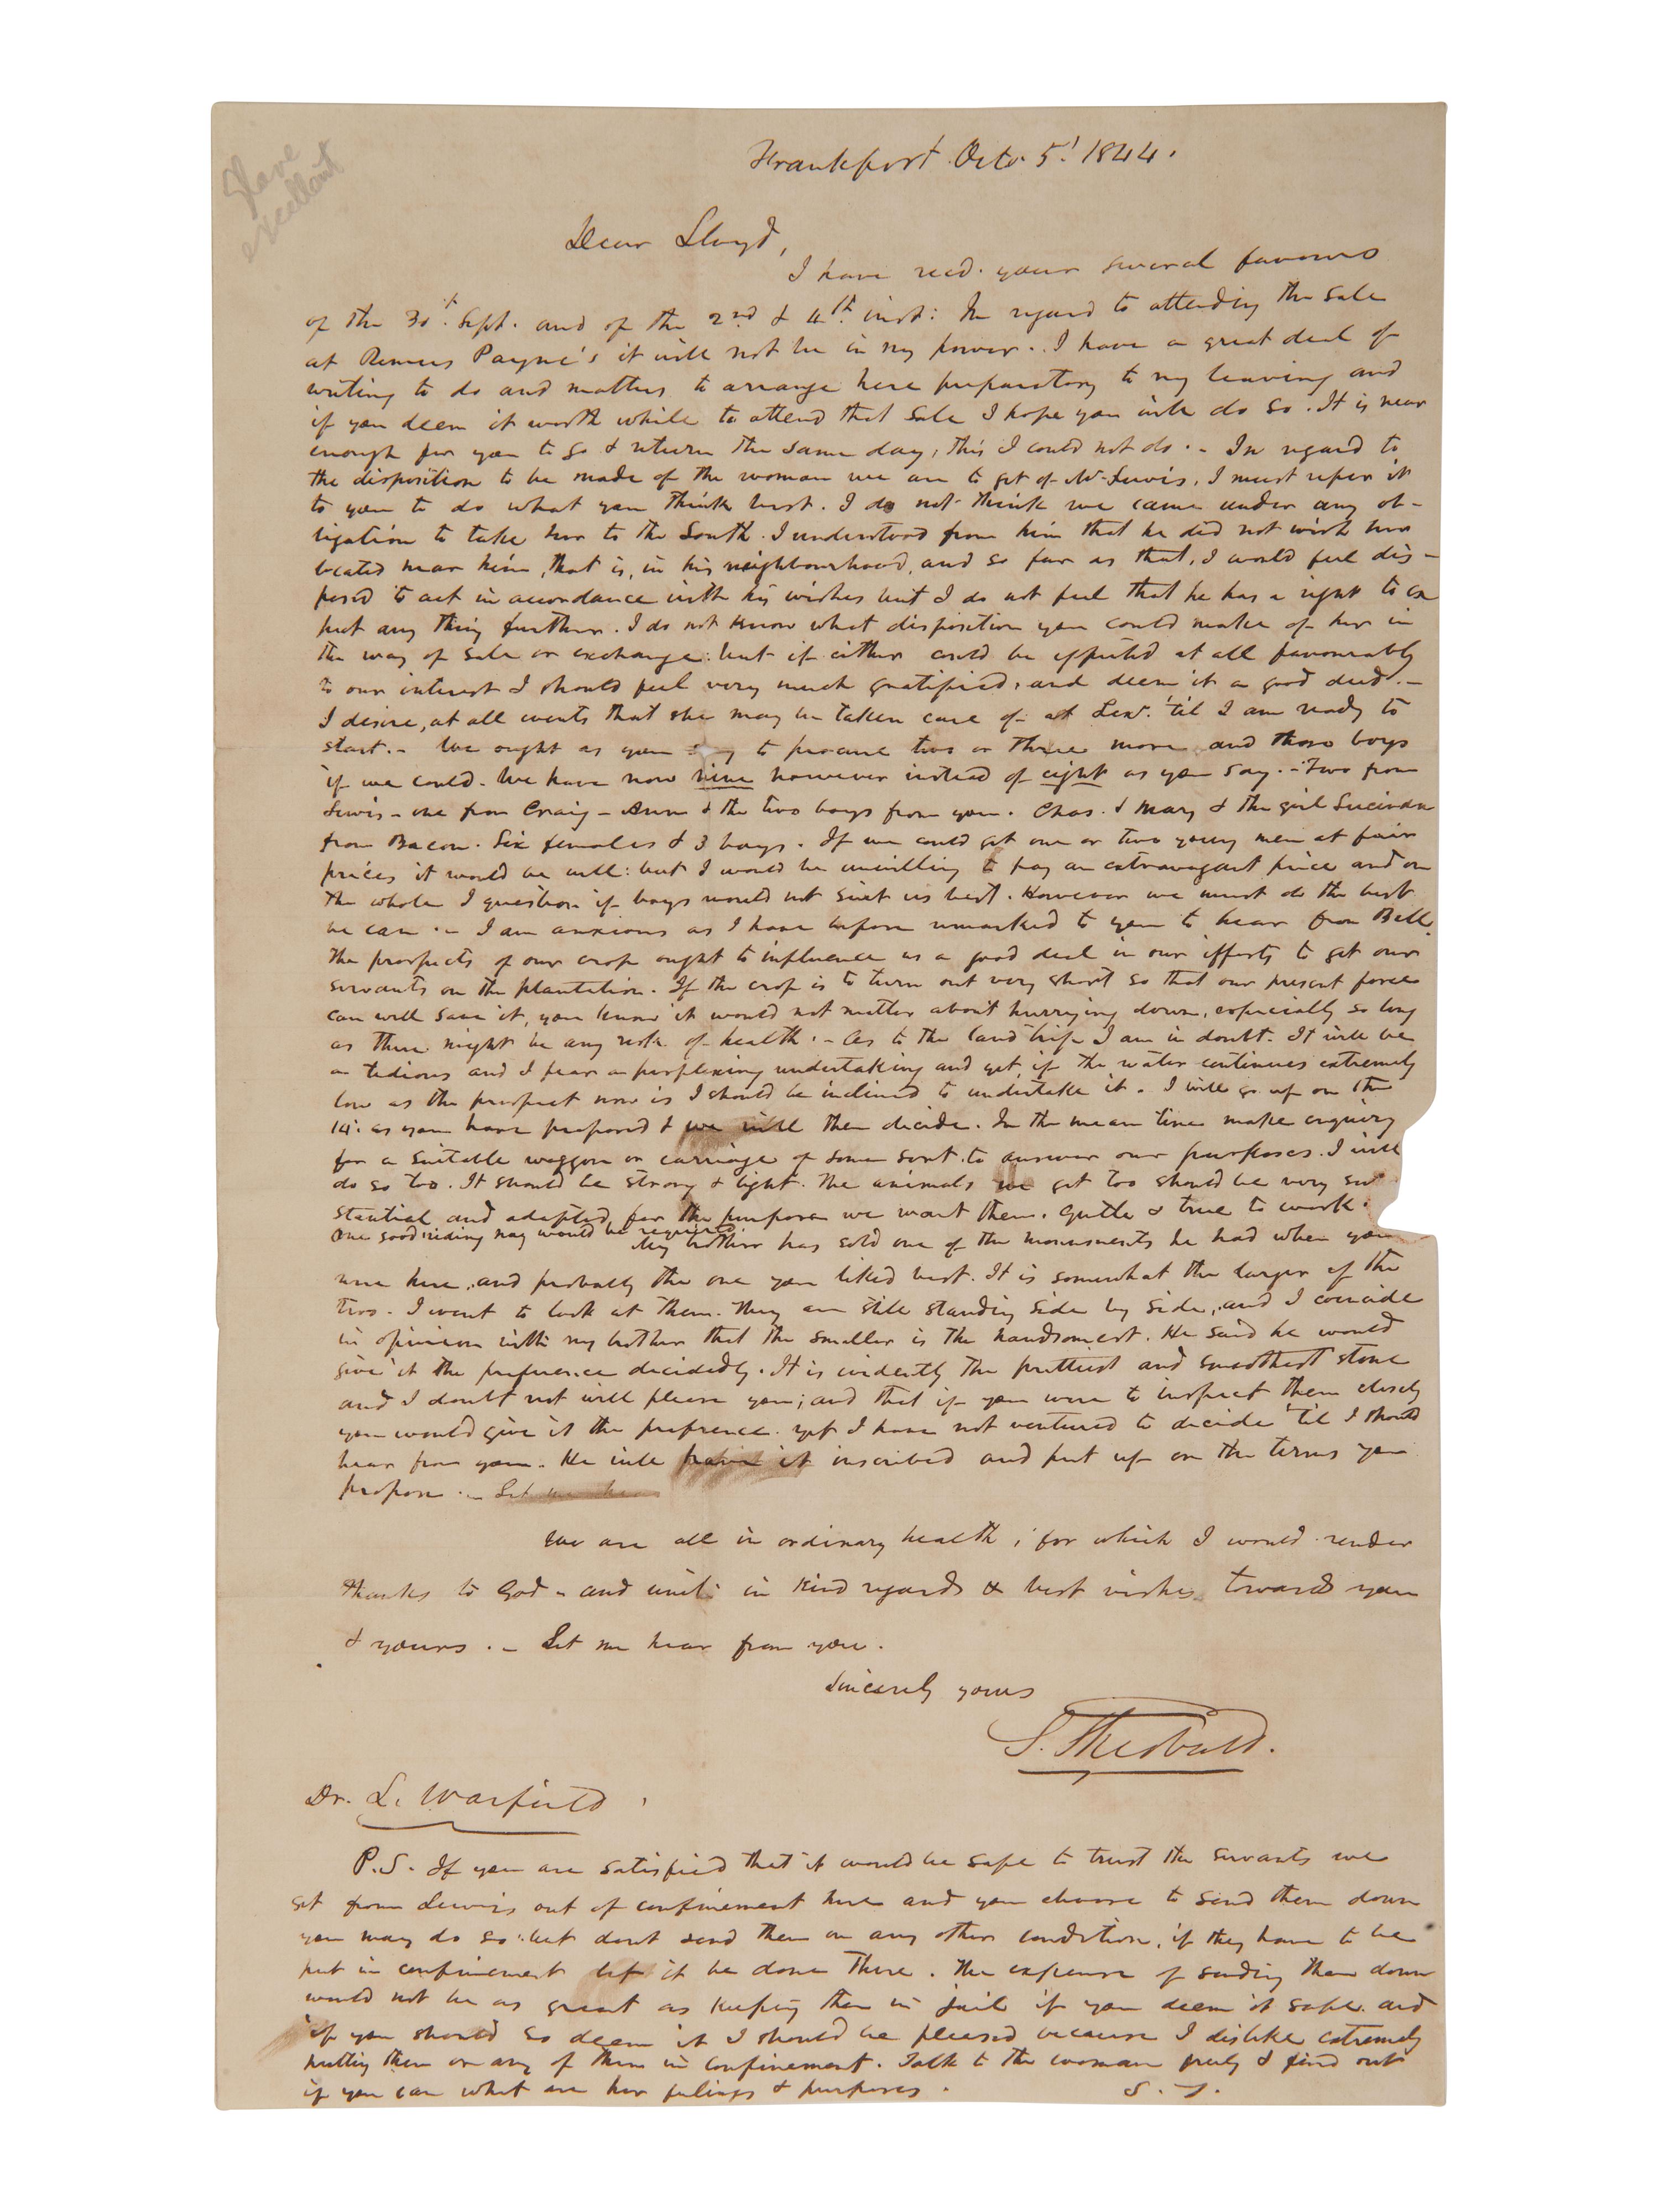 Slave
excellent
Frankfort Octo. 5! 1844.
Dear Lloyd,
I have recd. your several favours
of the 30t. Sept. and of the 2nd & 4th inst: In regard to attending the sale
at Remus Payne's it will not be in my power. I have a great deal of
writing to do and matters to arrange here preparatory to my leaving and
if you deem it worth while to attend that sale I hope you will do so. It is near
enough for you to go & return the same day, this I could not do. - In regard to
the disposition to be made of the woman we are to get of Mr Lewis, I must refer it
to you to do what you think best. I do not think we came under any ob-
ligation to take her to the South. I understood from him that he did not wish her
located near him, that is, in his neighbourhood, and so far as that, I would feel dis-
posed to act in accordance with his wishes but I do not feel that he has a right to ex
pect any thing further. I do not know what disposition you could make of her in
the way of sale or exchange: but if either could be effected at all favourably
to our interest I should feel very much gratified, and deem it a good deed. -
I desire, at all events that she may be taken care of at Lexn. 'til I am ready to
start. - We ought as you say to procure two or three more and those boys
if we could. We have now nine however instead of eight as you say. - Two from
Lewis - one from Craig - Ann & the two boys from you. Chas. & Mary & the girl Lucinda
from Bacon. Six females & 3 boys. If we could get one or two young men at fair
prices it would be well: but I would be unwilling to pay an extravagant price and on
the whole I question if boys would not suit us best. However we must do the best
we can. - I am anxious as I have before remarked to you to hear from Bell.
The prospects of our crop ought to influence us a good deal in our efforts to get our
servants on the plantation. If the crop is to turn out very short so that our present force
can well save it, you know it would not matter about hurrying down, especially so long
as there might be any risk of health. - As to the land trip I am in doubt. It will be
a tedious and I fear a perplexing undertaking and yet, if the water continues extremely
low as the prospect now is I should be inclined to undertake it. I will go up on the
14. as you have proposed & we will then decide. In the mean time make enquiry
for a suitable waggon or carriage of some sort to answer our purposes. I will
do so too. It should be strong & light. The animals we get too should be very su
stantial and adapted for the purpose we want them, gentle & true to work.
One good riding nag would be required.
My brother has sold one of the monuments he had when you
were here, and probably the one you liked best. It is somewhat the larger of the
two. I went to look at them. They are still standing side by side, and I coincide
in opinion with my brother that the smaller is the handsomest. He said he would
give it the preference decidedly. It is evidently the prettiest and smoothest stone
and I doubt not will please you; and that if you were to inspect them closely
you would give it the prefrence. yet I have not ventured to decide 'til I should
hear from you. He will have it inscribed and put up on the terms you
propose. - Let me
We are all in ordinary health, for which I would render
thanks to God - and unite in kind regards & best wishes towards you
& yours. - Let me hear from you.
Sincerely yours
S. Theobald.
Dr. L. Warfield
P.S. If you are satisfied that it would be safe to trust the servants we
get from Lewis out of confinement here and you choose to send them down
you may do so: but dont send them on any other condition, if they have to be
put in confinement let it be done there. The expense of sending them down
would not be as great as keeping them in jail if you deem it safe. and
if you should so deem it I should be pleased because I dislike extremely
putting them or any of them in confinement. Talk to the woman freely & find out
if you can what are her feelings & purposes. S. T.